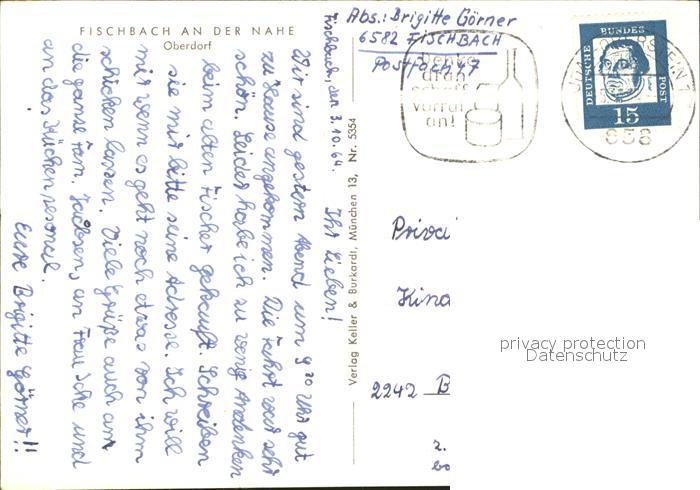 FISCHBACH AN DER NAHE
Oberdorf
Fischbach, den 3.10.64.
Ihr Lieben!
Wir sind gestern Abend um 9³⁰ Uhr gut
zu Hause angekommen. Die Fahrt war sehr
schön. Leider habe ich zu wenig Andenken
beim alten Fischer gekauft. Schreiben
sie mir bitte seine Adresse. Ich will
mir wenn es geht noch etwas von ihm
schicken lassen. Viele Grüße auch an
die ganze Fam. Jacobsen, an Frau Iche und
an das Küchenpersonal.
Eure Brigitte Görner!!
Verlag Keller & Burkardt, München 13, Nr. 5354
Abs.: Brigitte Görner
6582 FISCHBACH
Postfach 47
denke
daran
schaff
vorrat
an!
DEUTSCHE BUNDESPOST
15
Privat
Kind
2242 B
z.
bo
privacy protection
Datenschutz